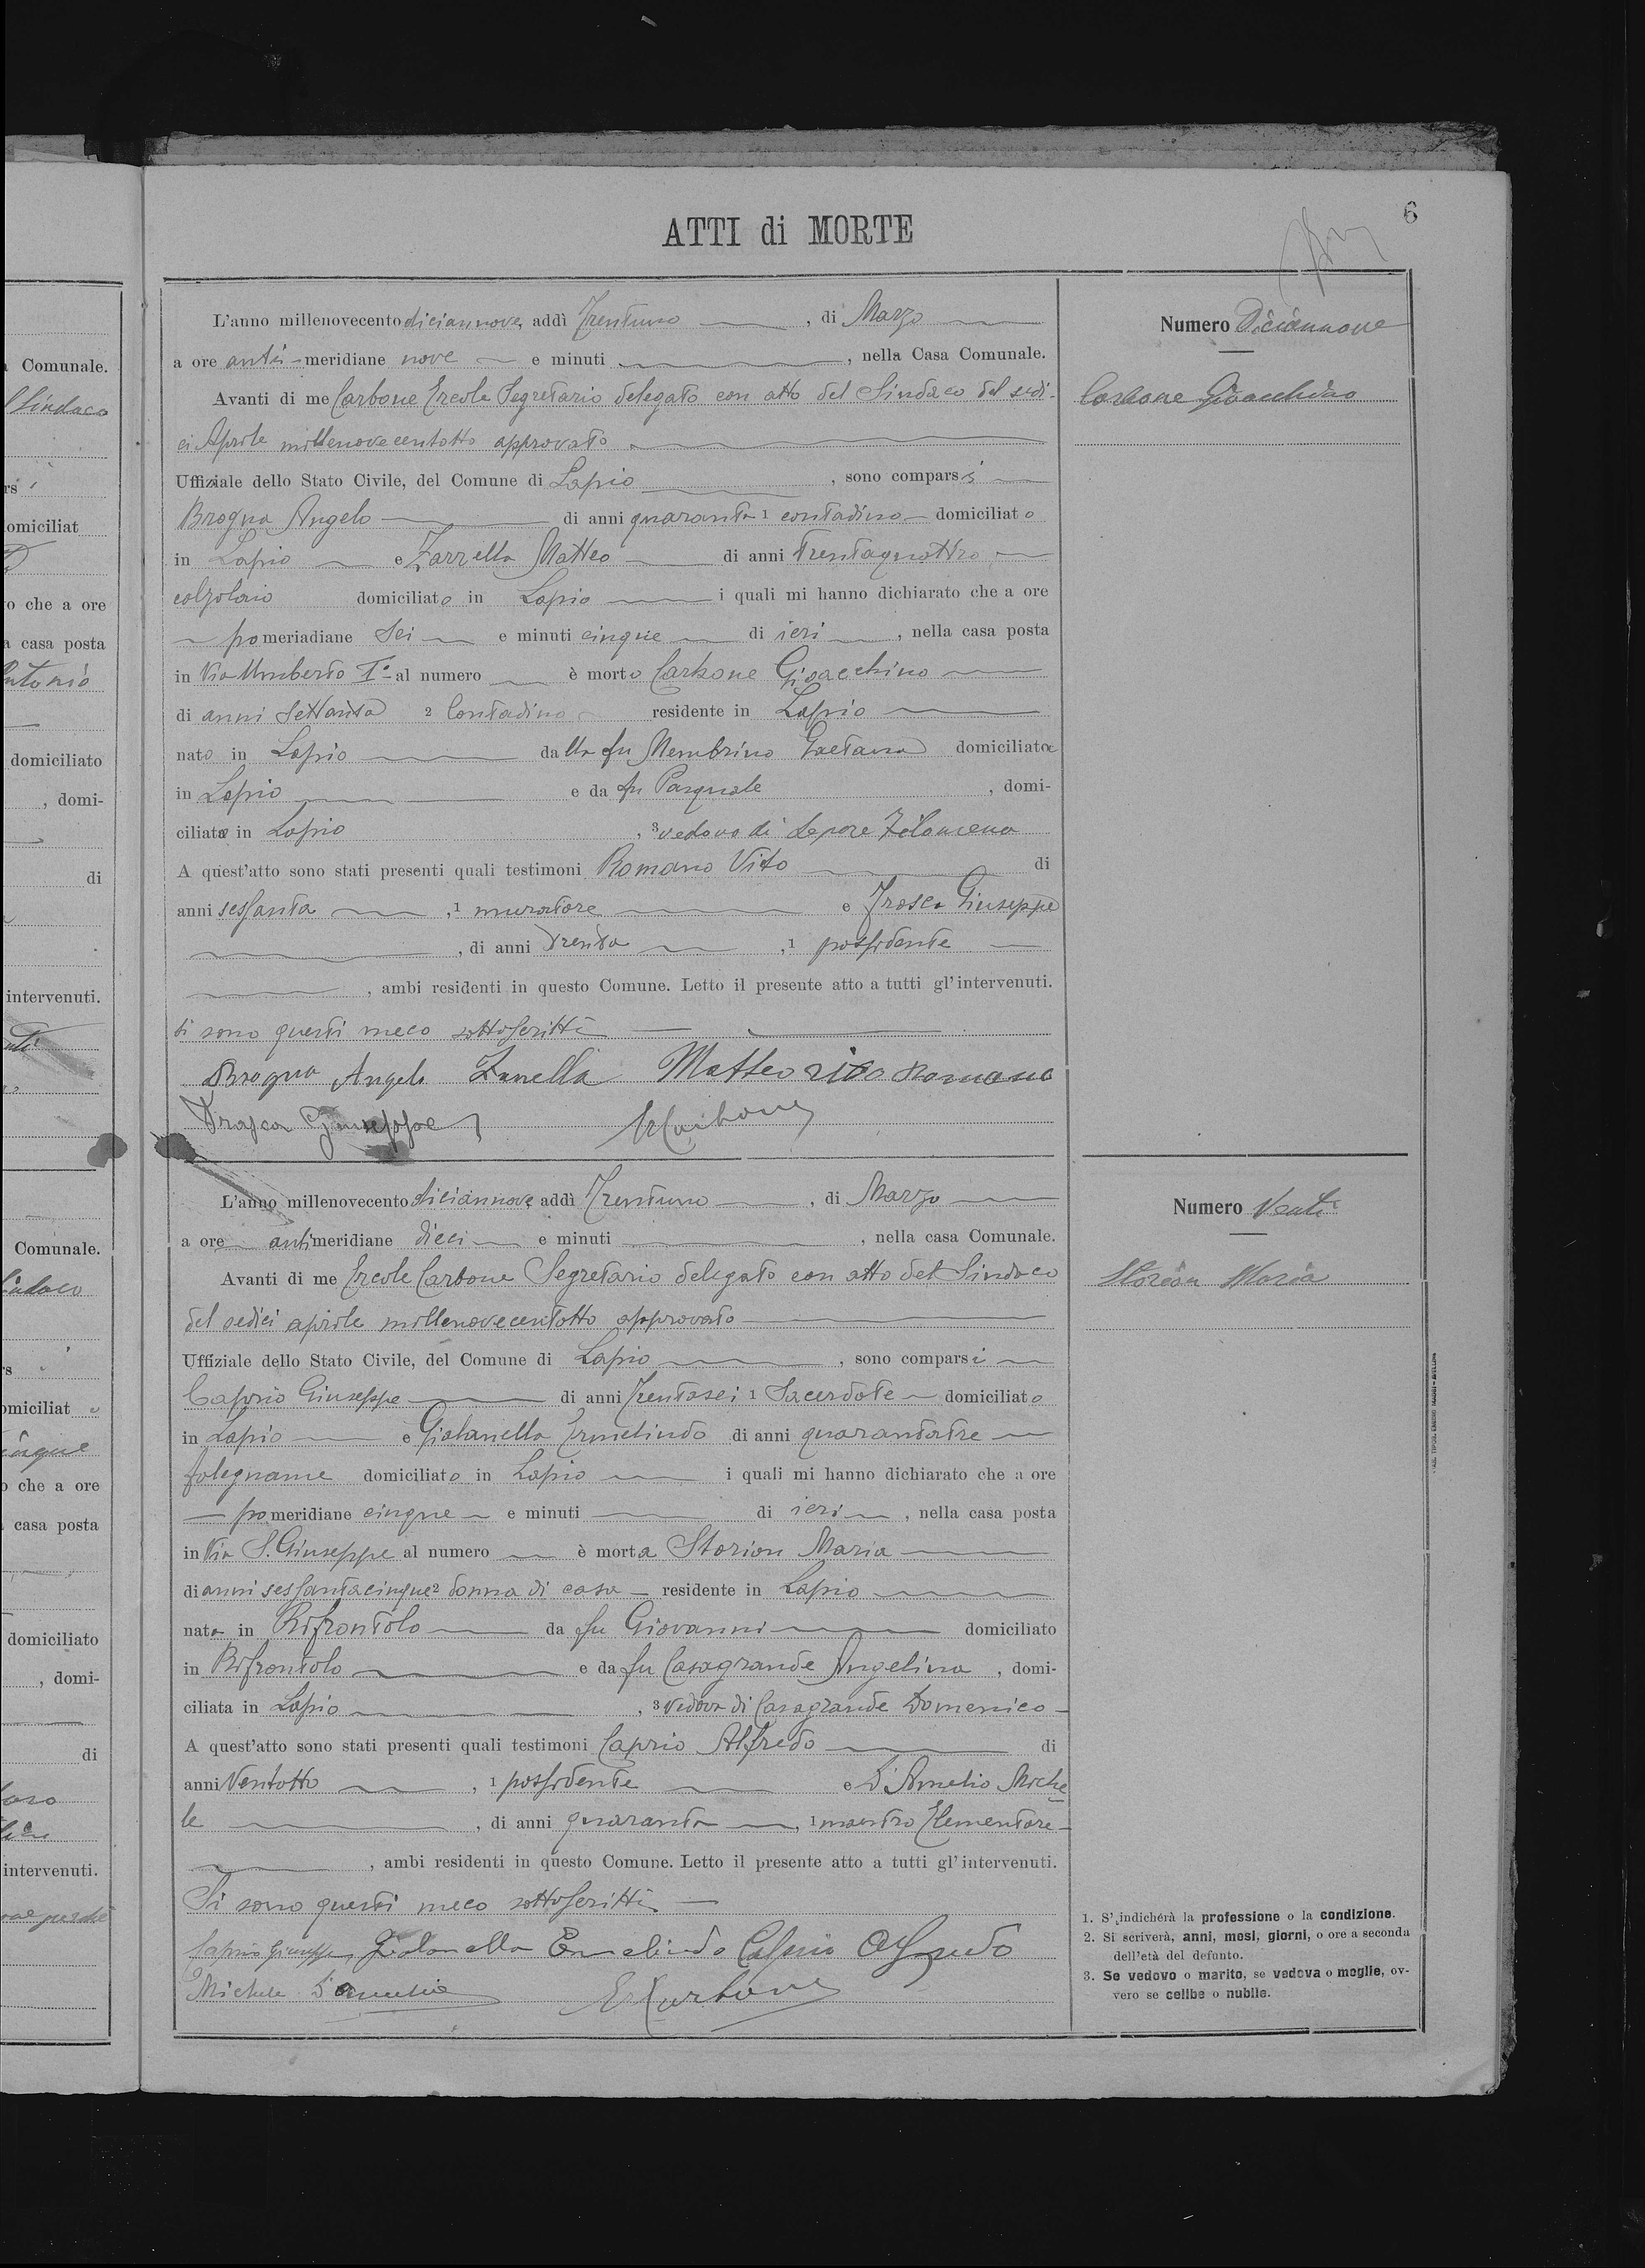 6
ATTI di MORTE
L'anno millenovecento diciannove, addì Trentuno, di Marzo
a ore anti-meridiane nove e minuti, nella Casa Comunale.
Avanti di me Carbone Ercole Segretario delegato con atto del Sindaco del sedi-
ci Aprile millenovecentotto approvato
Uffiziale dello Stato Civile, del Comune di Lapio, sono comparsi
Brogna Angelo di anni quaranta 1 contadino domiciliato
in Lapio e Zarrella Matteo di anni trentaquattro
calzolaio domiciliato in Lapio i quali mi hanno dichiarato che a ore
pomeriadiane sei e minuti cinque di ieri, nella casa posta
in Via Umberto I° al numero è morto Carbone Gioacchino
di anni settanta 2 Contadino residente in Lapio
nato in Lapio dalla fu Membrino Gaetana domiciliata
in Lapio e da fu Pasquale, domi-
ciliato in Lapio, 3 vedovo di Lepore Filomena
A quest'atto sono stati presenti quali testimoni Romano Vito di
anni sessanta, 1 muratore e Frasca Giuseppe
, di anni trenta, 1 possidente
, ambi residenti in questo Comune. Letto il presente atto a tutti gl'intervenuti.
si sono questi meco sottoscritti
Brogna Angelo Zarrella Matteo Vito Romano
Frasca Giuseppe ECarbone
Numero Diciannove
Carbone Gioacchino
L'anno millenovecento diciannove addì Trentuno, di Marzo
a ore antimeridiane dieci e minuti, nella casa Comunale.
Avanti di me Ercole Carbone Segretario delegato con atto del Sindaco
del sedici aprile millenovecentotto approvato
Uffiziale dello Stato Civile, del Comune di Lapio, sono comparsi
Caprio Giuseppe di anni trentasei 1 Sacerdote domiciliato
in Lapio e Giolanella Ermelindo di anni quarantatre
falegname domiciliato in Lapio i quali mi hanno dichiarato che a ore
pomeridiane cinque e minuti di ieri, nella casa posta
in Via S. Giuseppe al numero è morta Storion Maria
di anni sessantacinque 2 donna di casa residente in Lapio
nata in Rifrontolo da fu Giovanni domiciliato
in Rifrontolo e da fu Casagrande Angelina, domi-
ciliata in Lapio, 3 Vedova di Casagrande Domenico
A quest'atto sono stati presenti quali testimoni Caprio Alfredo di
anni Ventotto, 1 possidente e D'Amelio Miche
le, di anni quaranta, 1 maestro Elementare
, ambi residenti in questo Comune. Letto il presente atto a tutti gl'intervenuti.
Si sono questi meco sottoscritti
Caprio Giuseppe Giolanella Ermelindo Caprio Alfredo
Michele D'Amelio ECarbone
Numero Venti
Storion Maria
1. S'indicherà la professione o la condizione.
2. Si scriverà, anni, mesi, giorni, o ore a seconda
dell'età del defunto.
3. Se vedovo o marito, se vedova o moglie, ov-
vero se celibe o nubile.